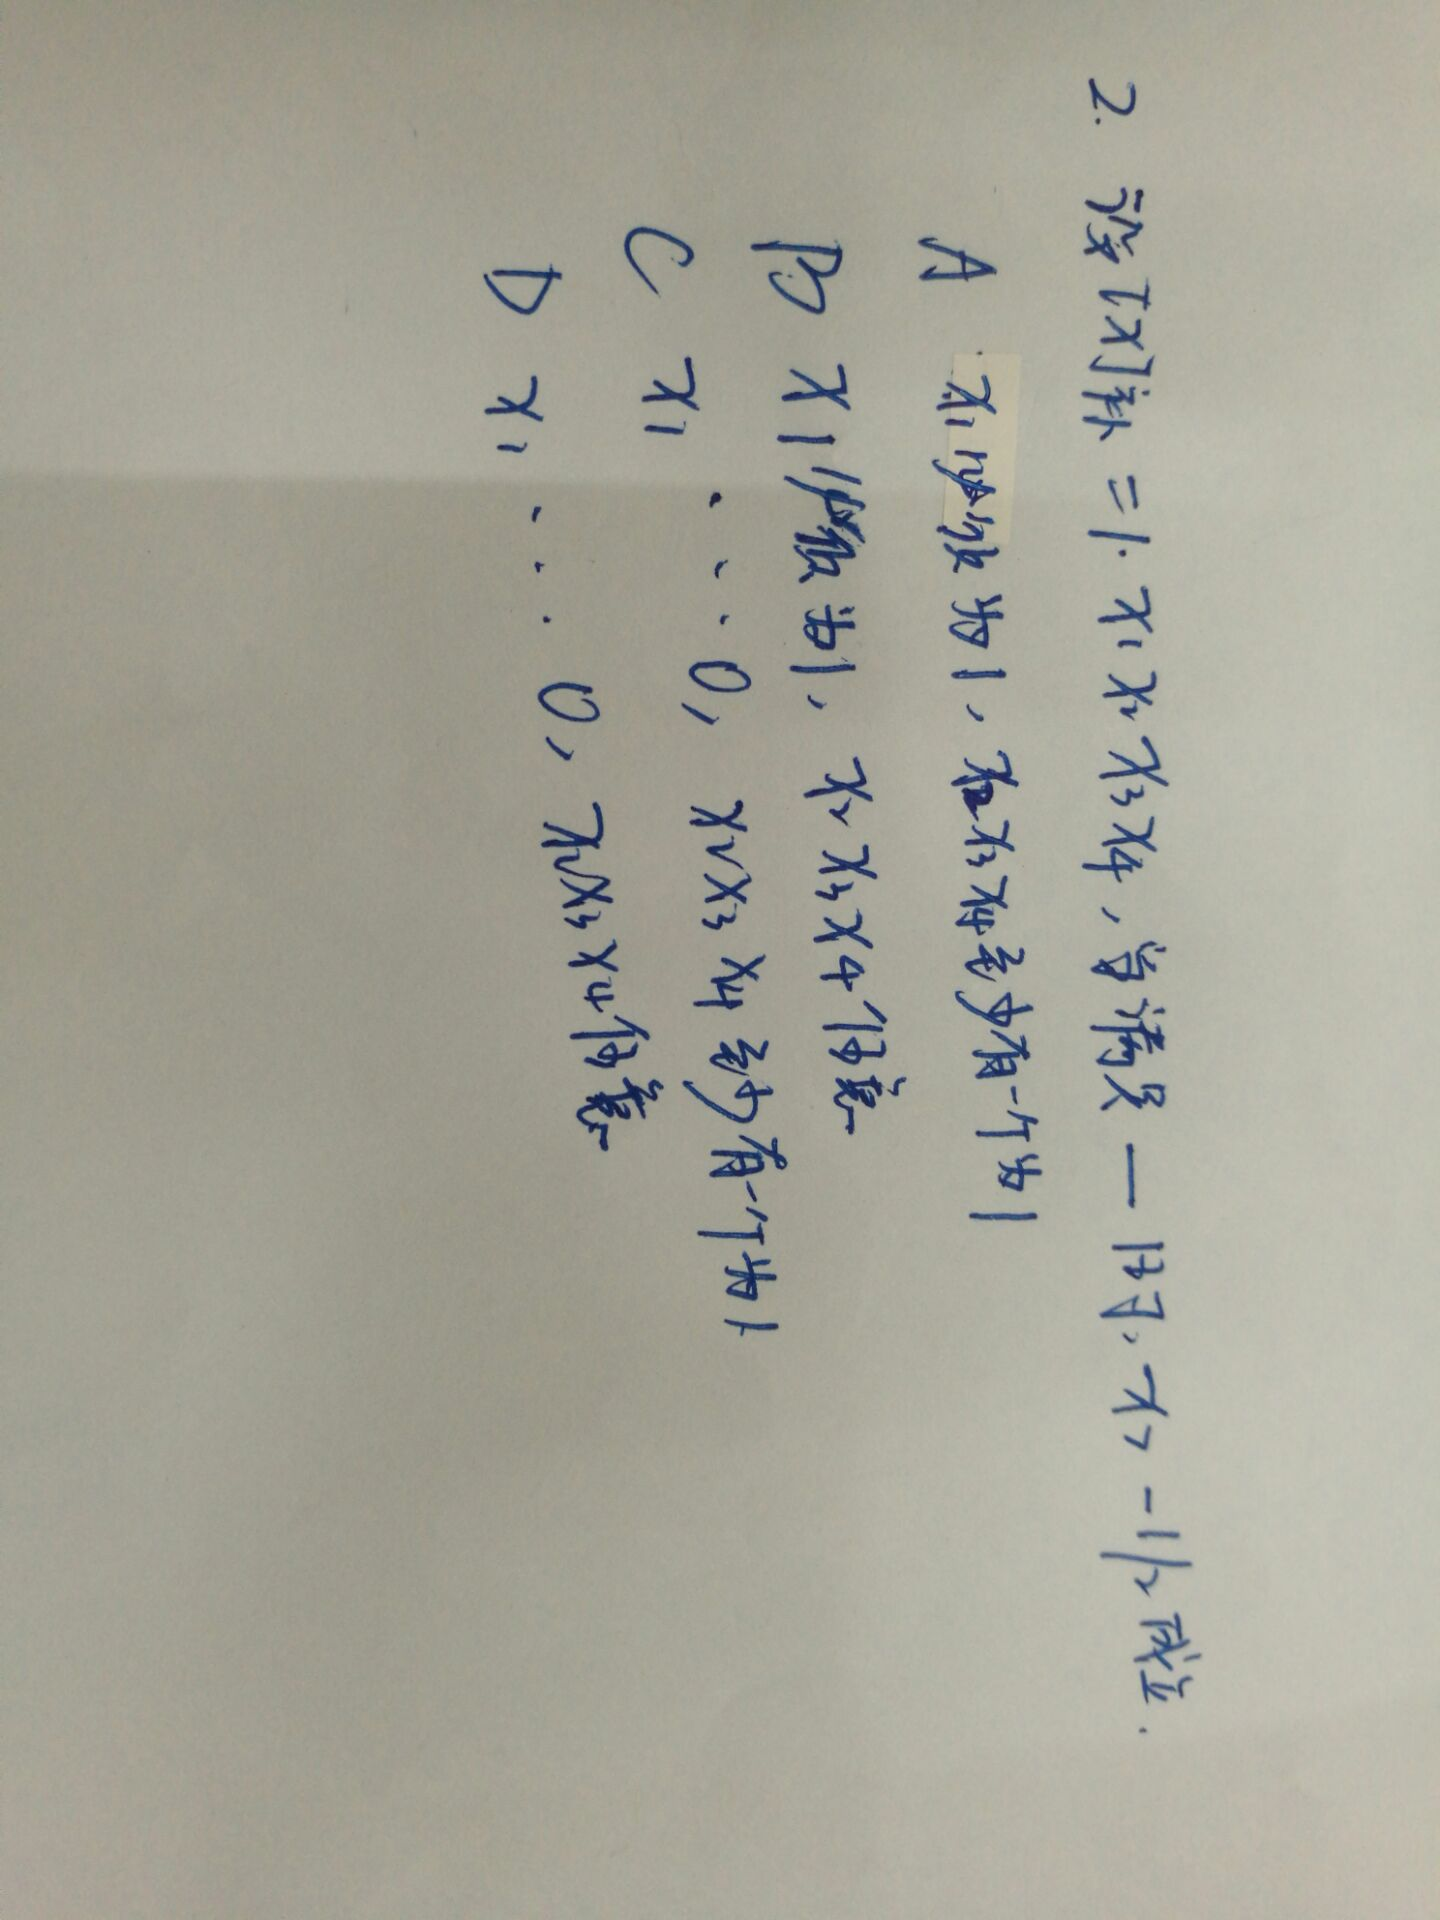 2. 设[X]补 = 1. x1 x2 x3 x4, 当满足 — 时, x > -1/2 成立.
A x1必须为1, x2x3x4至少有一个为1
B x1必须为1, x2 x3 x4任意
C x1 ... 0, x2x3 x4至少有一个为1
D x1 ... 0, x2x3x4任意